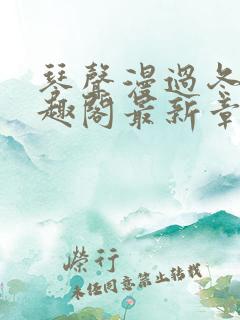 琴聲漫過冬
趣閣最新章
榮行
未经同意禁止转载